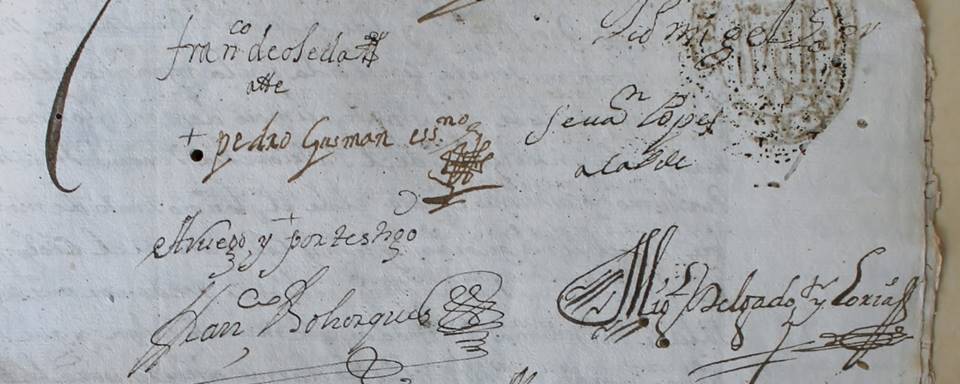 franco deoseda
atte
+ pedro Gusman essno
miguel
Seuan Lopes
alcalde
A Ruego y por testigo
Franco Bohorques
Migl Delgado y Loria